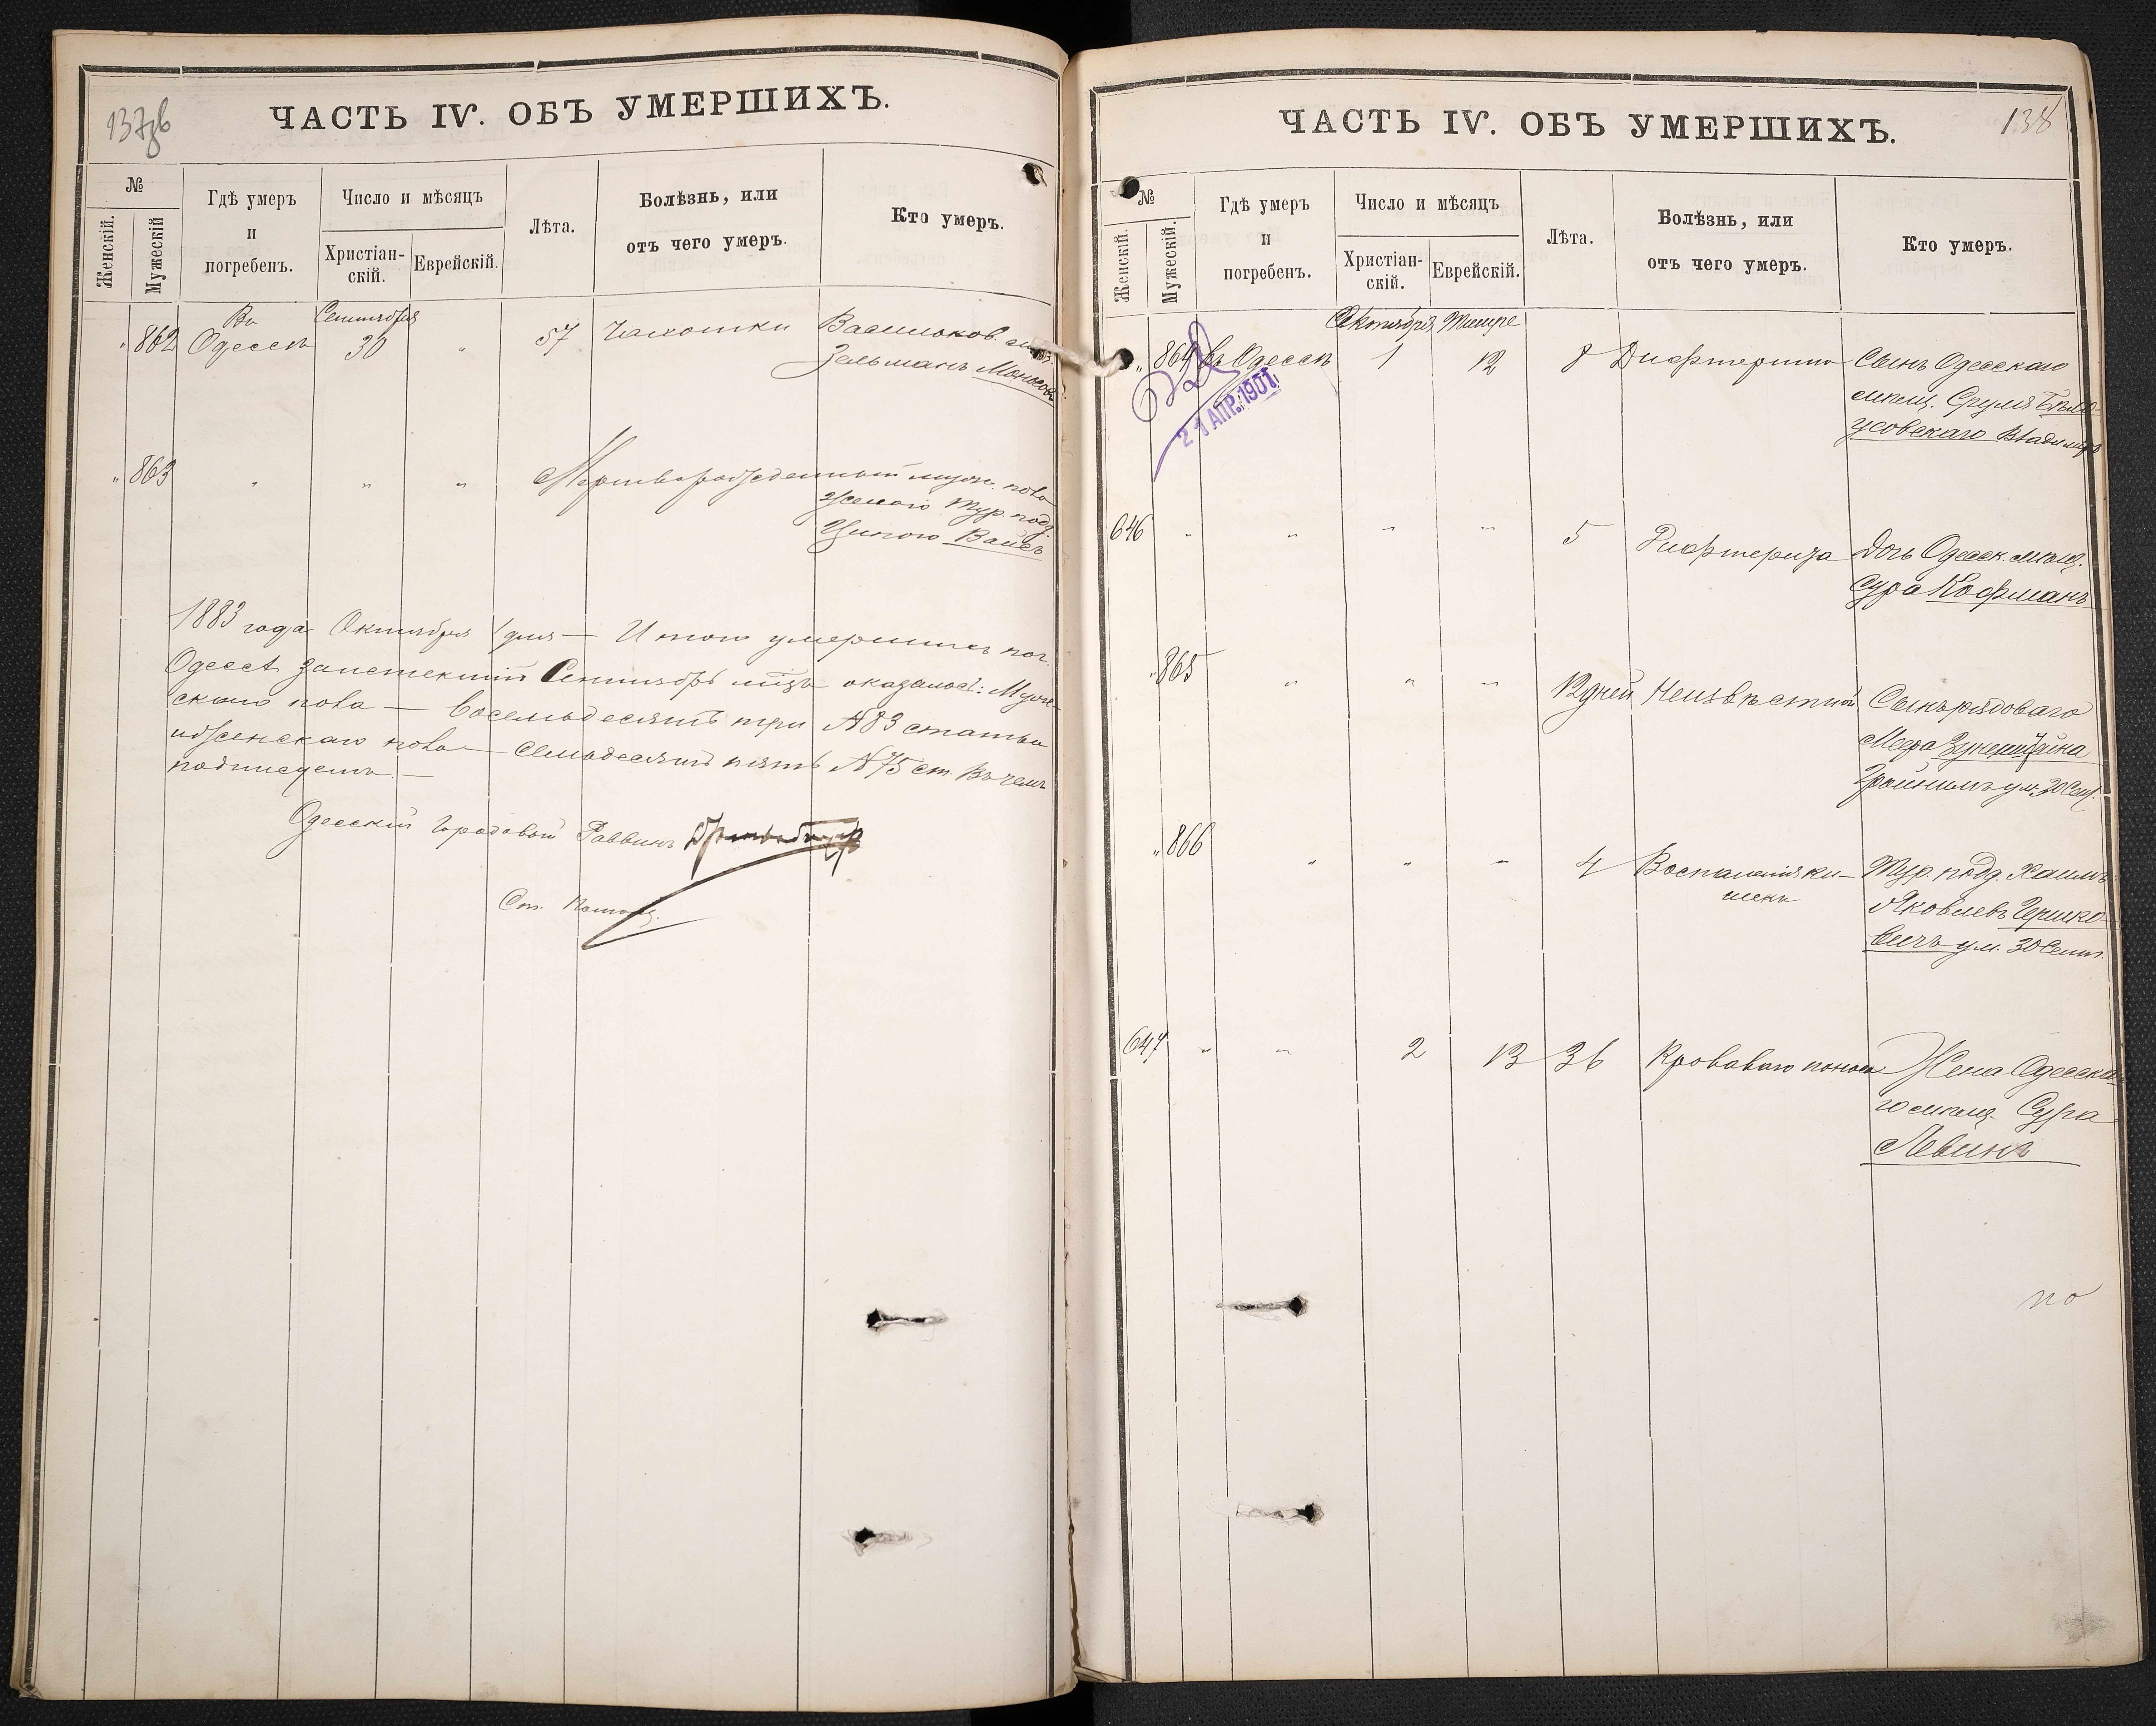 137об
ЧАСТЬ IV. ОБЪ УМЕРШИХЪ.
№
Женскій.
Мужескій
Гдѣ умеръ
и
погребенъ.
Число и мѣсяцъ
Христіан-
скій.
Еврейскій.
Лѣта.
Болѣзнь, или
отъ чего умеръ.
Кто умеръ.
Въ Сентября
„ 862 Одессѣ 30 „ 57 Чахотки Васильков. мѣщ.
Зельманъ Моносовъ
„ 863 „ „ „ Мертворожденный муж. пола
женою Тур. подд.
Ципою Вайсъ
1883 года Октября 1 дня — Итого умершихъ по г.
Одессѣ за истекшій Сентябрь мѣць оказалось: Муже-
скаго пола — восемьдесятъ три № 83 статьи
и Женскаго пола — семьдесятъ пять № 75 ст. Въ чемъ
подписуемъ. —
Одесскій Городовой Раввинъ
Ст.
138
ЧАСТЬ IV. ОБЪ УМЕРШИХЪ.
№
Женскій.
Мужескій.
Гдѣ умеръ
и
погребенъ.
Число и мѣсяцъ
Христіан-
скій.
Еврейскій.
Лѣта.
Болѣзнь, или
отъ чего умеръ.
Кто умеръ.
Октября Тишре
„ 864 въ Одессѣ 1 12 8 Дифтерита Сынъ Одесскаго
мѣщ. Сруля Бѣло-
усовскаго Владимиръ
21 АПР. 1901
646 „ „ „ „ 5 Дифтерита Дочь Одесск. мѣщ.
Сура Кофманъ
„ 865 „ „ „ 12 дней Неизвѣстной Сынъ рядоваго
ум. 30 Сент.
„ 866 „ „ „ 4 Воспаленія ки- Тур. подд. Хаимъ
шекъ Яковлевъ Гершко-
вичъ ум. 30 Сент.
647 „ „ 2 13 36 Кроваваго поноса Жена Одесска-
го мѣщ. Сура
Левинъ
по